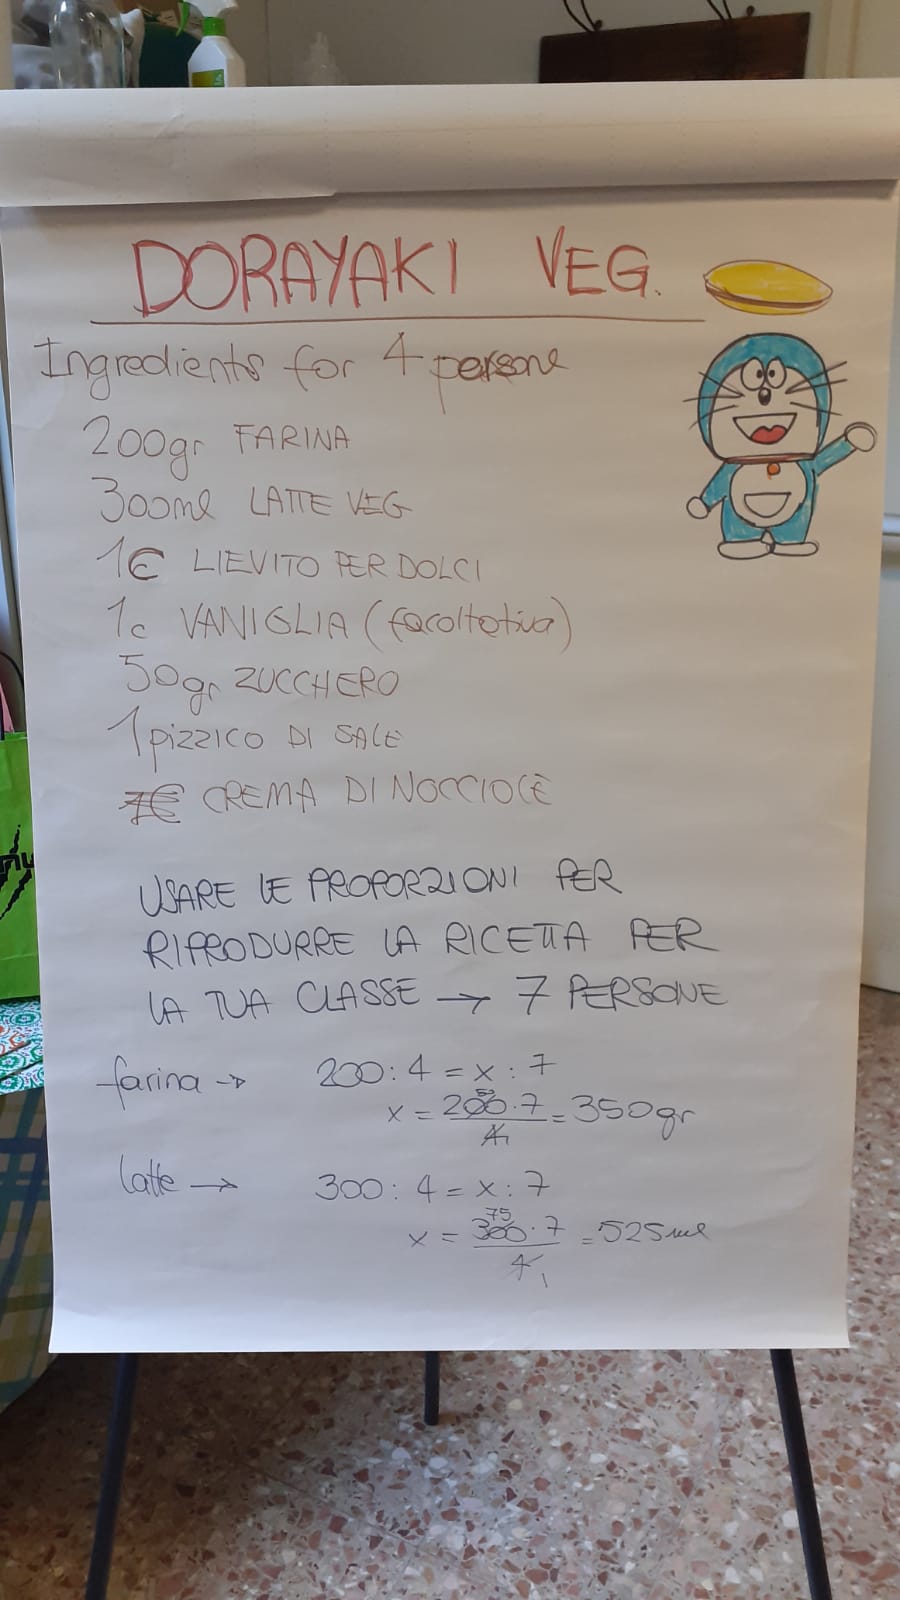 DORAYAKI VEG.
Ingredients for 4 persone
200gr FARINA
300ml LATTE VEG
1C LIEVITO PER DOLCI
1c VANIGLIA (facoltativa)
50gr ZUCCHERO
1 pizzico DI SALE
CREMA DI NOCCIOLE
USARE LE PROPORZIONI PER
RIPRODURRE LA RICETTA PER
LA TUA CLASSE → 7 PERSONE
farina → 200 : 4 = x : 7
50
x = 200 · 7 = 350gr
4 1
latte → 300 : 4 = x : 7
75
x = 300 · 7 = 525 ml
4 1